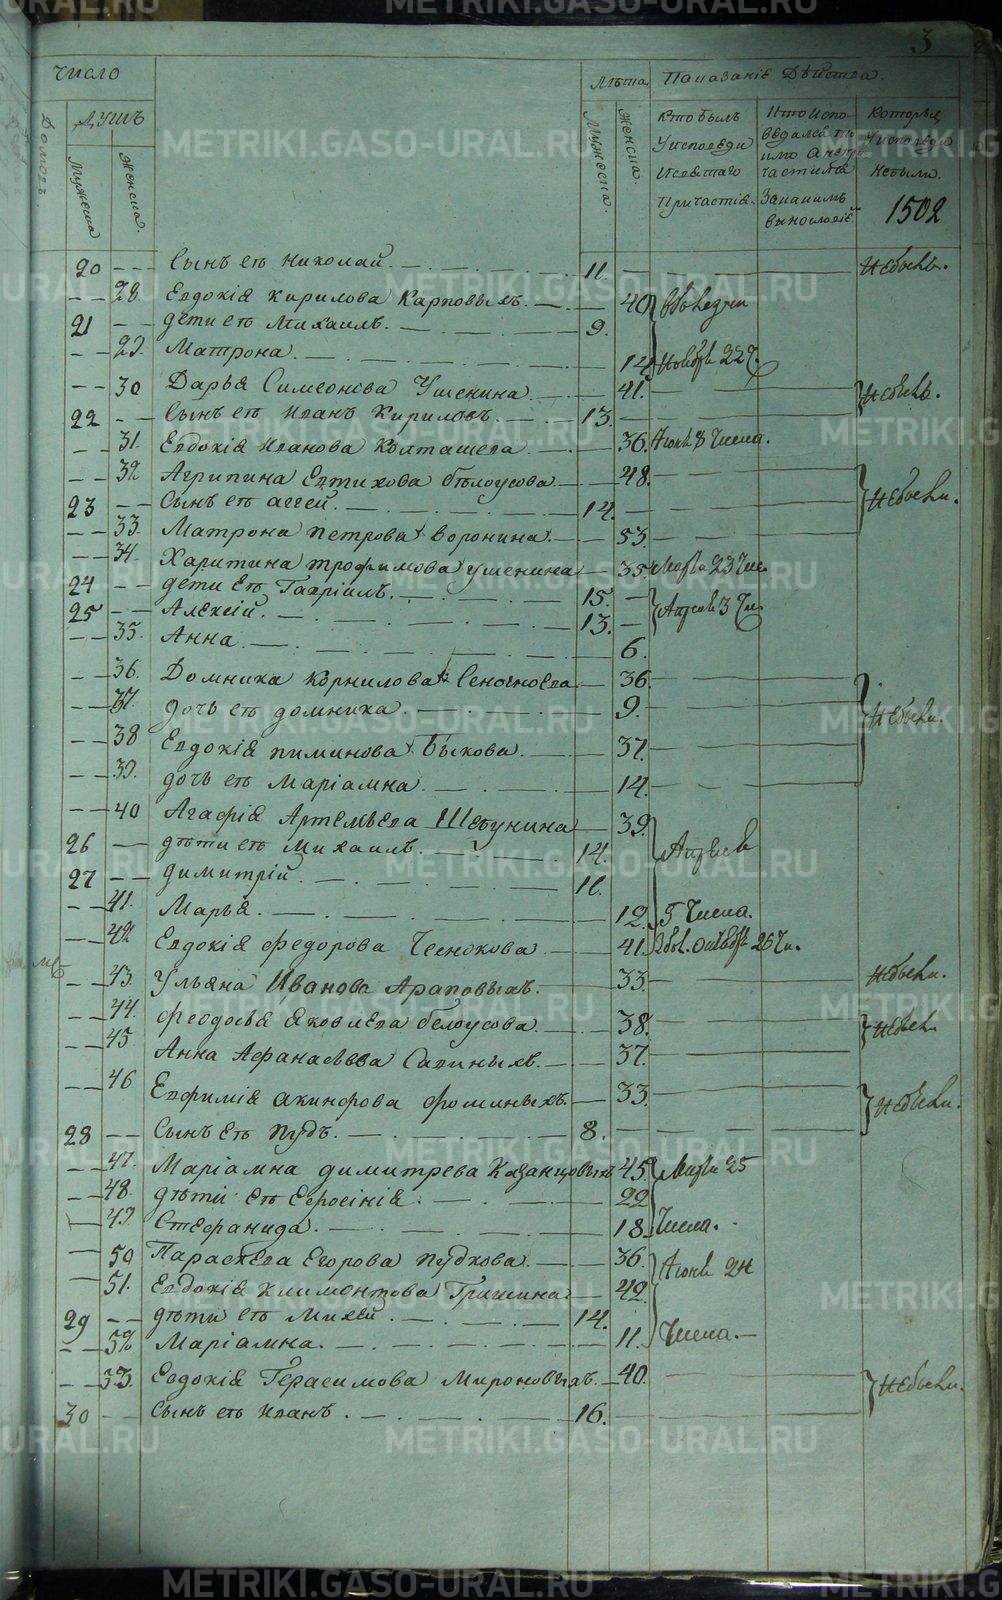 METRIKI.GASO-URAL.RU
3
Число
Домовъ.
Душъ
Мужеска
Женска.
Лѣта.
Мужеска.
Женска.
Показаніе Дѣйства.
Кто былъ
Уисповеди
Исвятаго
Причастія.
Кто испо-
ведался то
Которые
Уисповеди
небыли.
1502
20 — Сынъ ея Николай. 11. Небылъ.
28. Евдокія Кирилова Карповыхъ. 40
21 — дети ея Михаилъ. 9.
29. Матрона. 14 Ноября 22 ч.
30 Дарья Симеонова Ушенина. 41. Небылъ.
22 — Сынъ ея Иванъ Кириловъ. 13.
31. Евдокія Иванова Колташева. 36. 8 Числа.
32 Агрипина Евтихова бѣлоусова. 48. Небыли.
23 — Сынъ ея Аггей. 14.
33. Матрона петрова Воронина. 53.
34. Харитина трофимова Ушенина 35. Марта 23 Чис
24 — дети ея Гавріилъ. 15.
25 — Алексій. 13. Апреля 3 Чис
35. Анна. 6.
36. Домника Корнилова 36.
37. дочь ея домника. 9. Небыли.
38 Евдокія пиминова Быкова. 37.
39. дочь ея Маріамна. 14.
40 Агафія Артемьева Шебунина 39.
26 — дѣти ея Михаилъ. 14. Апреля
27 — димитрій. 11.
41. Марья. 12. 5 Числа.
42 Евдокія федорова Чеснокова. 41. октября 26 Чи.
43 Ульяна Иванова Араповыхъ. 33. Небыли.
44. феодосья Яковлева белоусова. 38. Небыли
45 Анна Афанасьева 37.
46 Евфимія Акинфова фоминыхъ. 33. Небыли.
28 — Сынъ ея Пудъ. 8.
47. Маріамна димитрева Казанцовыхъ 45. Марта 25
48. дѣти ея Ефросинія. 22
49. Стефанида. 18. Числа.
50 Параскева Егорова Пудкова. 36.
51. Евдокія Климонтова Гришина 42. 24
29 — дѣти ея Михей. 14.
52 Маріамна. 11. Числа.
53. Евдокія Герасимова Мироновыхъ. 40. Небыли.
30 — Сынъ ея Иванъ. 16.